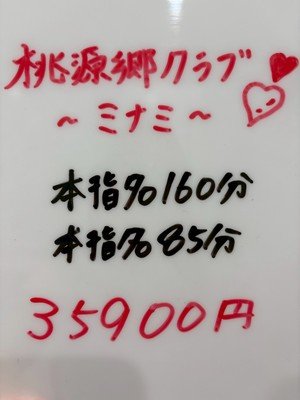 桃源郷クラブ
~ミナミ~
本指名160分
本指名85分
35900円